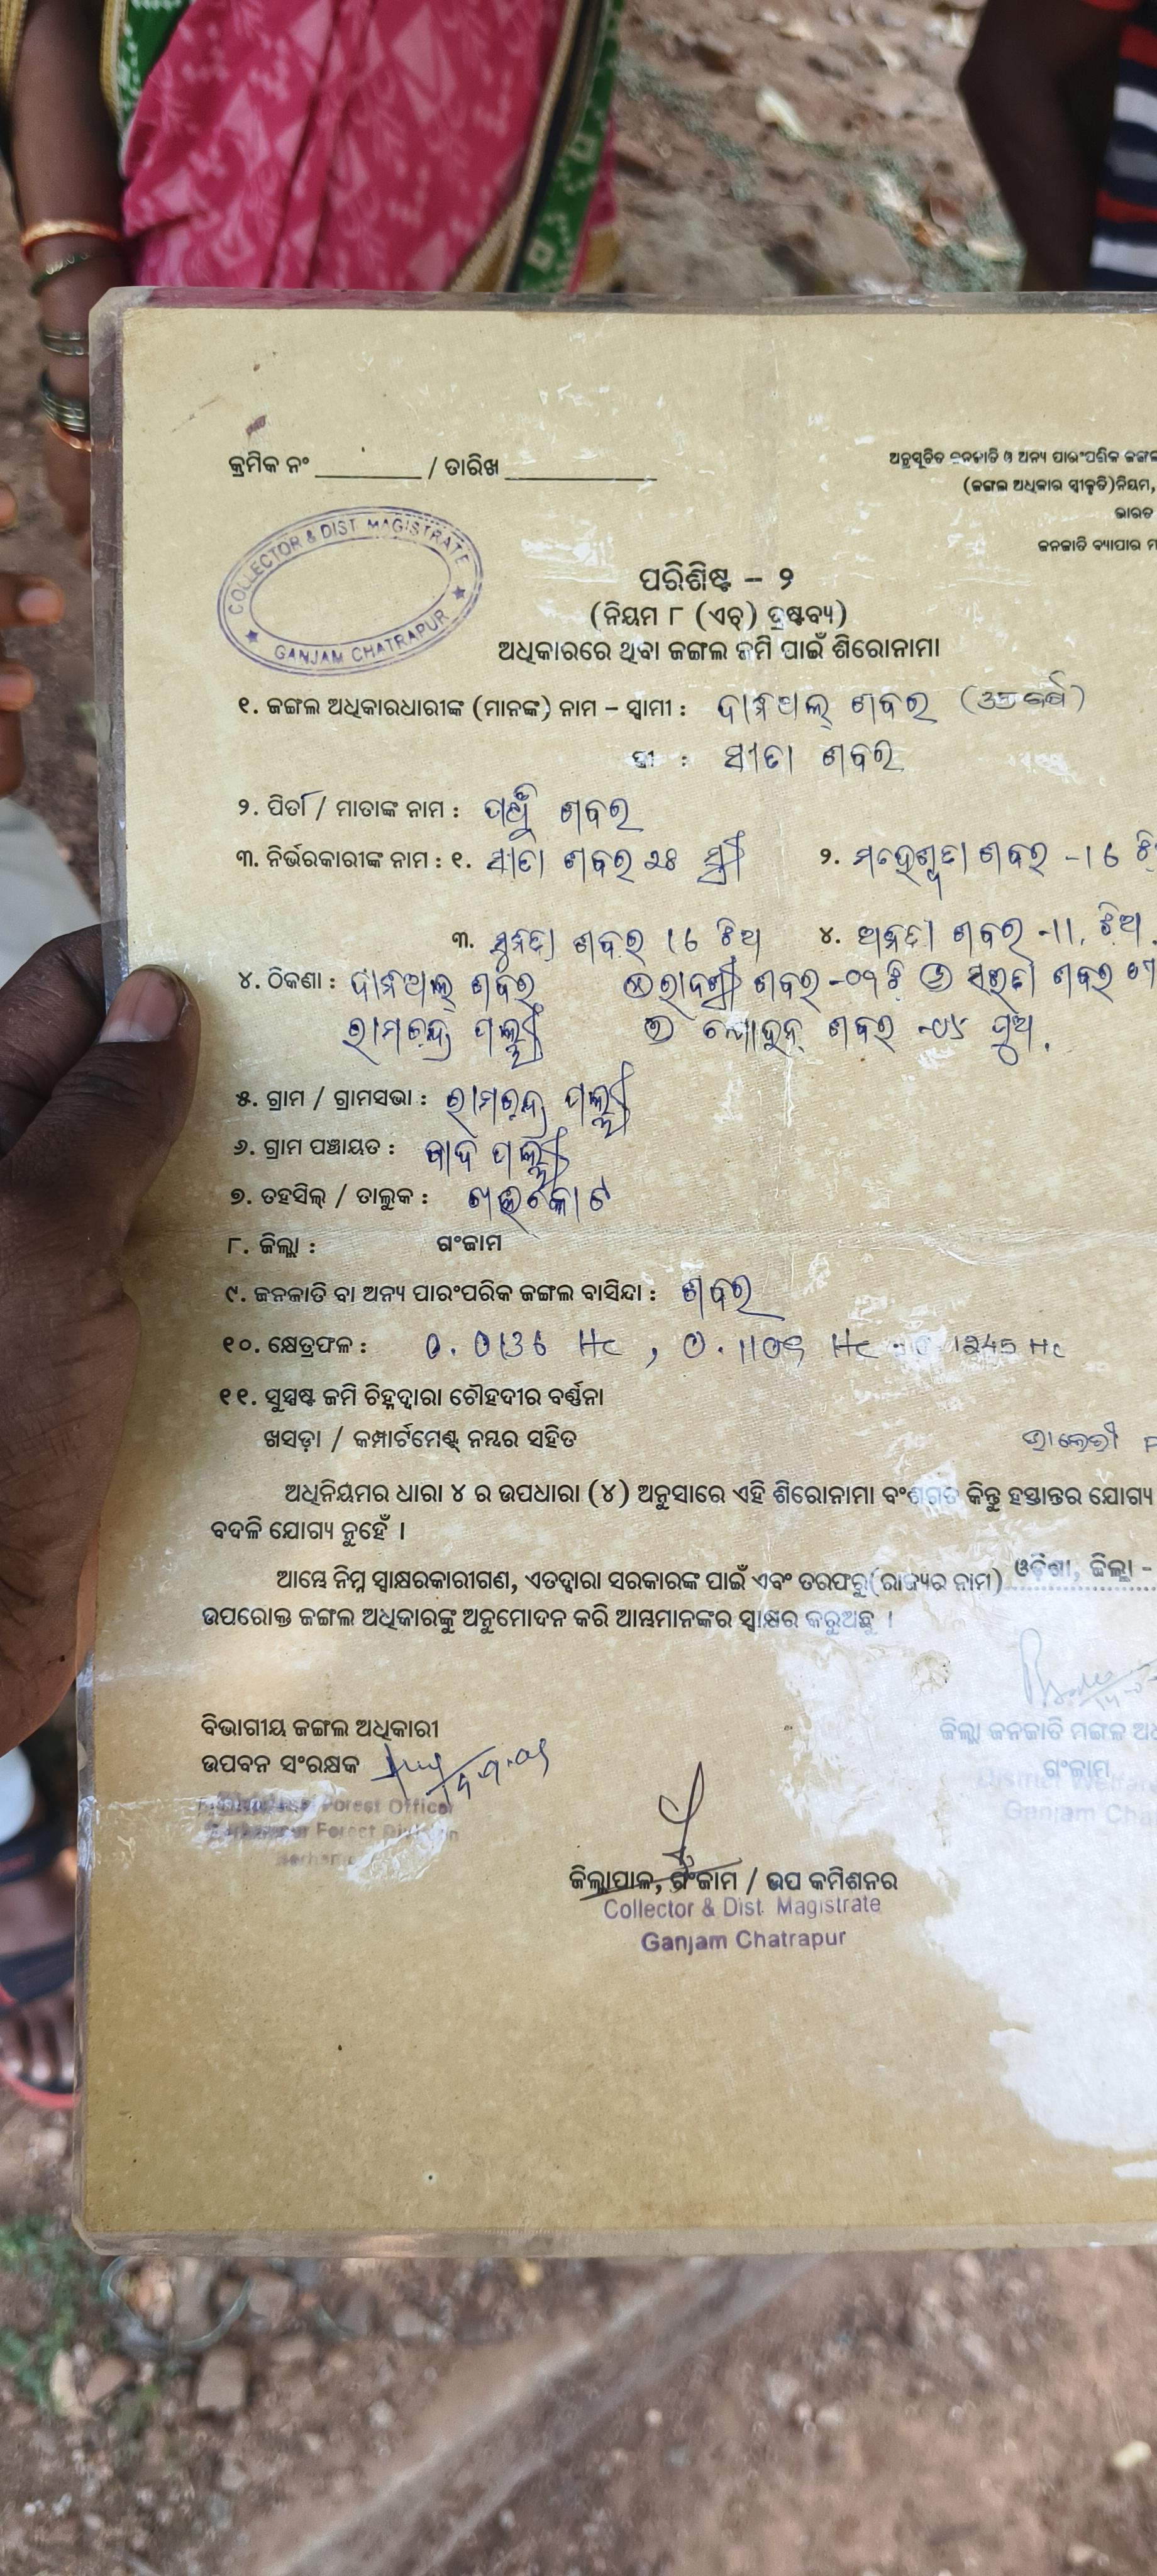 କ୍ରମିକ ନଂ ________ / ତାରିଖ ____________
ଅନୁସୂଚିତ ଜନଜାତି ଓ ଅନ୍ୟ ପାରଂପରିକ ଜଙ୍ଗଲ
(ଜଙ୍ଗଲ ଅଧିକାର ସ୍ୱୀକୃତି)ନିୟମ,
ଭାରତ
ଜନଜାତି ବ୍ୟାପାର
COLLECTOR & DIST. MAGISTRATE
GANJAM CHATRAPUR
ପରିଶିଷ୍ଟ – ୨
(ନିୟମ ୮ (ଏଚ୍) ଦ୍ରଷ୍ଟବ୍ୟ)
ଅଧିକାରରେ ଥିବା ଜଙ୍ଗଲ ଜମି ପାଇଁ ଶିରୋନାମା
୧. ଜଙ୍ଗଲ ଅଧିକାରଧାରୀଙ୍କ (ମାନଙ୍କ) ନାମ – ସ୍ୱାମୀ : ଦାନିଅଲ୍ ଶବର
ସ୍ତ୍ରୀ : ସୀତା ଶବର
୨. ପିତା / ମାତାଙ୍କ ନାମ : ଶବର
୩. ନିର୍ଭରକାରୀଙ୍କ ନାମ : ୧. ସୀତା ଶବର ସ୍ତ୍ରୀ ୨. ଶବର -16
୩. ସୁନନ୍ଦା ଶବର 16 ଝିଅ ୪. ଶବର -11. ଝିଅ.
୪. ଠିକଣା : ଦାନିଅଲ୍ ଶବର ଶବର ଶବର
ରାମଚନ୍ଦ୍ର ପଲ୍ଲୀ ଶବର ପୁଅ.
୫. ଗ୍ରାମ / ଗ୍ରାମସଭା : ରାମଚନ୍ଦ୍ର ପଲ୍ଲୀ
୬. ଗ୍ରାମ ପଞ୍ଚାୟତ : ପଲ୍ଲୀ
୭. ତହସିଲ୍ / ତାଲୁକ : ଖଲିକୋଟ
୮. ଜିଲ୍ଲା : ଗଂଜାମ
୯. ଜନଜାତି ବା ଅନ୍ୟ ପାରଂପରିକ ଜଙ୍ଗଲ ବାସିନ୍ଦା : ଶବର
୧୦. କ୍ଷେତ୍ରଫଳ : 0.0136 Hc , 0.1109 Hc 1245 Hc
୧୧. ସୁସ୍ପଷ୍ଟ ଜମି ଚିହ୍ନଦ୍ୱାରା ଚୌହଦୀର ବର୍ଣ୍ଣନା
ଖସଡ଼ା / କମ୍ପାର୍ଟମେଣ୍ଟ୍ ନମ୍ବର ସହିତ
ଅଧିନିୟମର ଧାରା ୪ ର ଉପଧାରା (୪) ଅନୁସାରେ ଏହି ଶିରୋନାମା ବଂଶଗତ କିନ୍ତୁ ହସ୍ତାନ୍ତର ଯୋଗ୍ୟ
ବଦଳି ଯୋଗ୍ୟ ନୁହେଁ ।
ଆମ୍ଭେ ନିମ୍ନ ସ୍ୱାକ୍ଷରକାରୀଗଣ, ଏତଦ୍ୱାରା ସରକାରଙ୍କ ପାଇଁ ଏବଂ ତରଫରୁ(ରାଜ୍ୟର ନାମ) ଓଡ଼ିଶା, ଜିଲ୍ଲା -
ଉପରୋକ୍ତ ଜଙ୍ଗଲ ଅଧିକାରଙ୍କୁ ଅନୁମୋଦନ କରି ଆମ୍ଭମାନଙ୍କର ସ୍ୱାକ୍ଷର କରୁଅଛୁ ।
ବିଭାଗୀୟ ଜଙ୍ଗଲ ଅଧିକାରୀ
ଉପବନ ସଂରକ୍ଷକ
Forest Officer
Forest Division
ଜିଲ୍ଲା ଜନଜାତି ମଙ୍ଗଳ
ଗଂଜାମ
District
Ganjam
ଜିଲ୍ଲାପାଳ, ଗଂଜାମ / ଉପ କମିଶନର
Collector & Dist. Magistrate
Ganjam Chatrapur